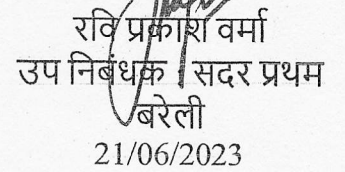 रवि प्रकाश वर्मा
उप निबंधक : सदर प्रथम
बरेली
21/06/2023